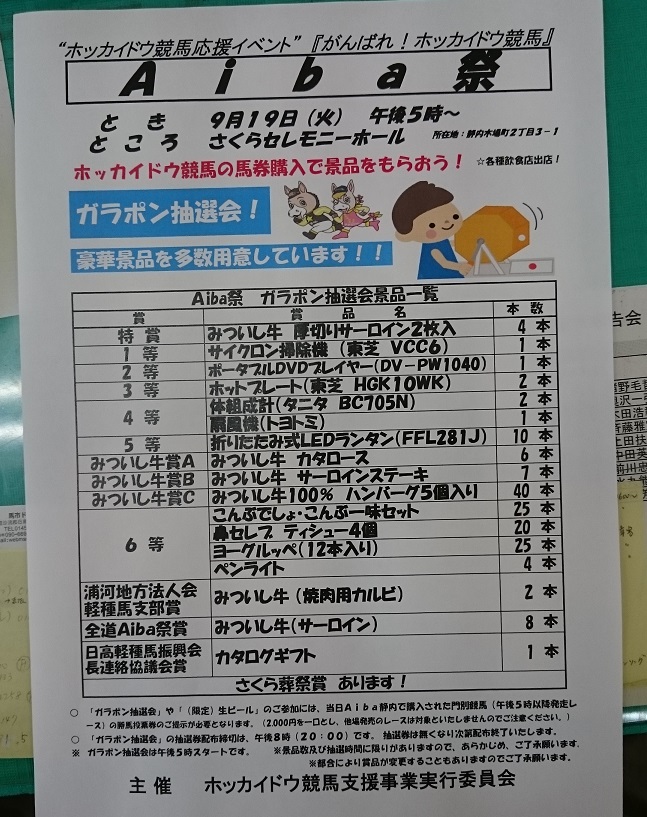 “ホッカイドウ競馬応援イベント”『がんばれ！ホッカイドウ競馬』
Aiba祭
とき　9月19日（火）　午後5時～
ところ　さくらセレモニーホール　所在地：静内木場町2丁目3－1
ホッカイドウ競馬の馬券購入で景品をもらおう！　☆各種飲食店出店！
ガラポン抽選会！
豪華景品を多数用意しています！！
Aiba祭　ガラポン抽選会景品一覧
賞　賞品名　本数
特賞　みついし牛　厚切りサーロイン2枚入　4本
1等　サイクロン掃除機（東芝　VCC6）　1本
2等　ポータブルDVDプレイヤー（DV－PW1040）　1本
3等　ホットプレート（東芝　HGK10WK）　2本
4等　体組成計（タニタ　BC705N）　2本
扇風機（トヨトミ）　1本
5等　折りたたみ式LEDランタン（FFL281J）　10本
みついし牛賞A　みついし牛　カタロース　6本
みついし牛賞B　みついし牛　サーロインステーキ　7本
みついし牛賞C　みついし牛100％　ハンバーグ5個入り　40本
6等　こんぶでしょ・こんぶ一味セット　25本
鼻セレブ　ティシュー4個　20本
ヨーグルッペ（12本入り）　25本
ペンライト　4本
浦河地方法人会
軽種馬支部賞　みついし牛（焼肉用カルビ）　2本
全道Aiba祭賞　みついし牛（サーロイン）　8本
日高軽種馬振興会
長連絡協議会賞　カタログギフト　1本
さくら葬祭賞　あります！
○　「ガラポン抽選会」や「（限定）生ビール」のご参加には、当日Aiba静内で購入された門別競馬（午後5時以降発走レ
ース）の勝馬投票券のご提示が必要となります。（2,000円を一口とし、他場発売のレースは対象といたしませんのでご注意ください。）
○　「ガラポン抽選会」の抽選券配布締切は、午後8時（20：00）です。　抽選券は無くなり次第配布終了いたします。
※　ガラポン抽選会は午後5時スタートです。　※景品数及び抽選時間に限りがありますので、あらかじめ、ご了承願います.
※都合により賞品が変更することもありますのでご了承願います。
主催　ホッカイドウ競馬支援事業実行委員会